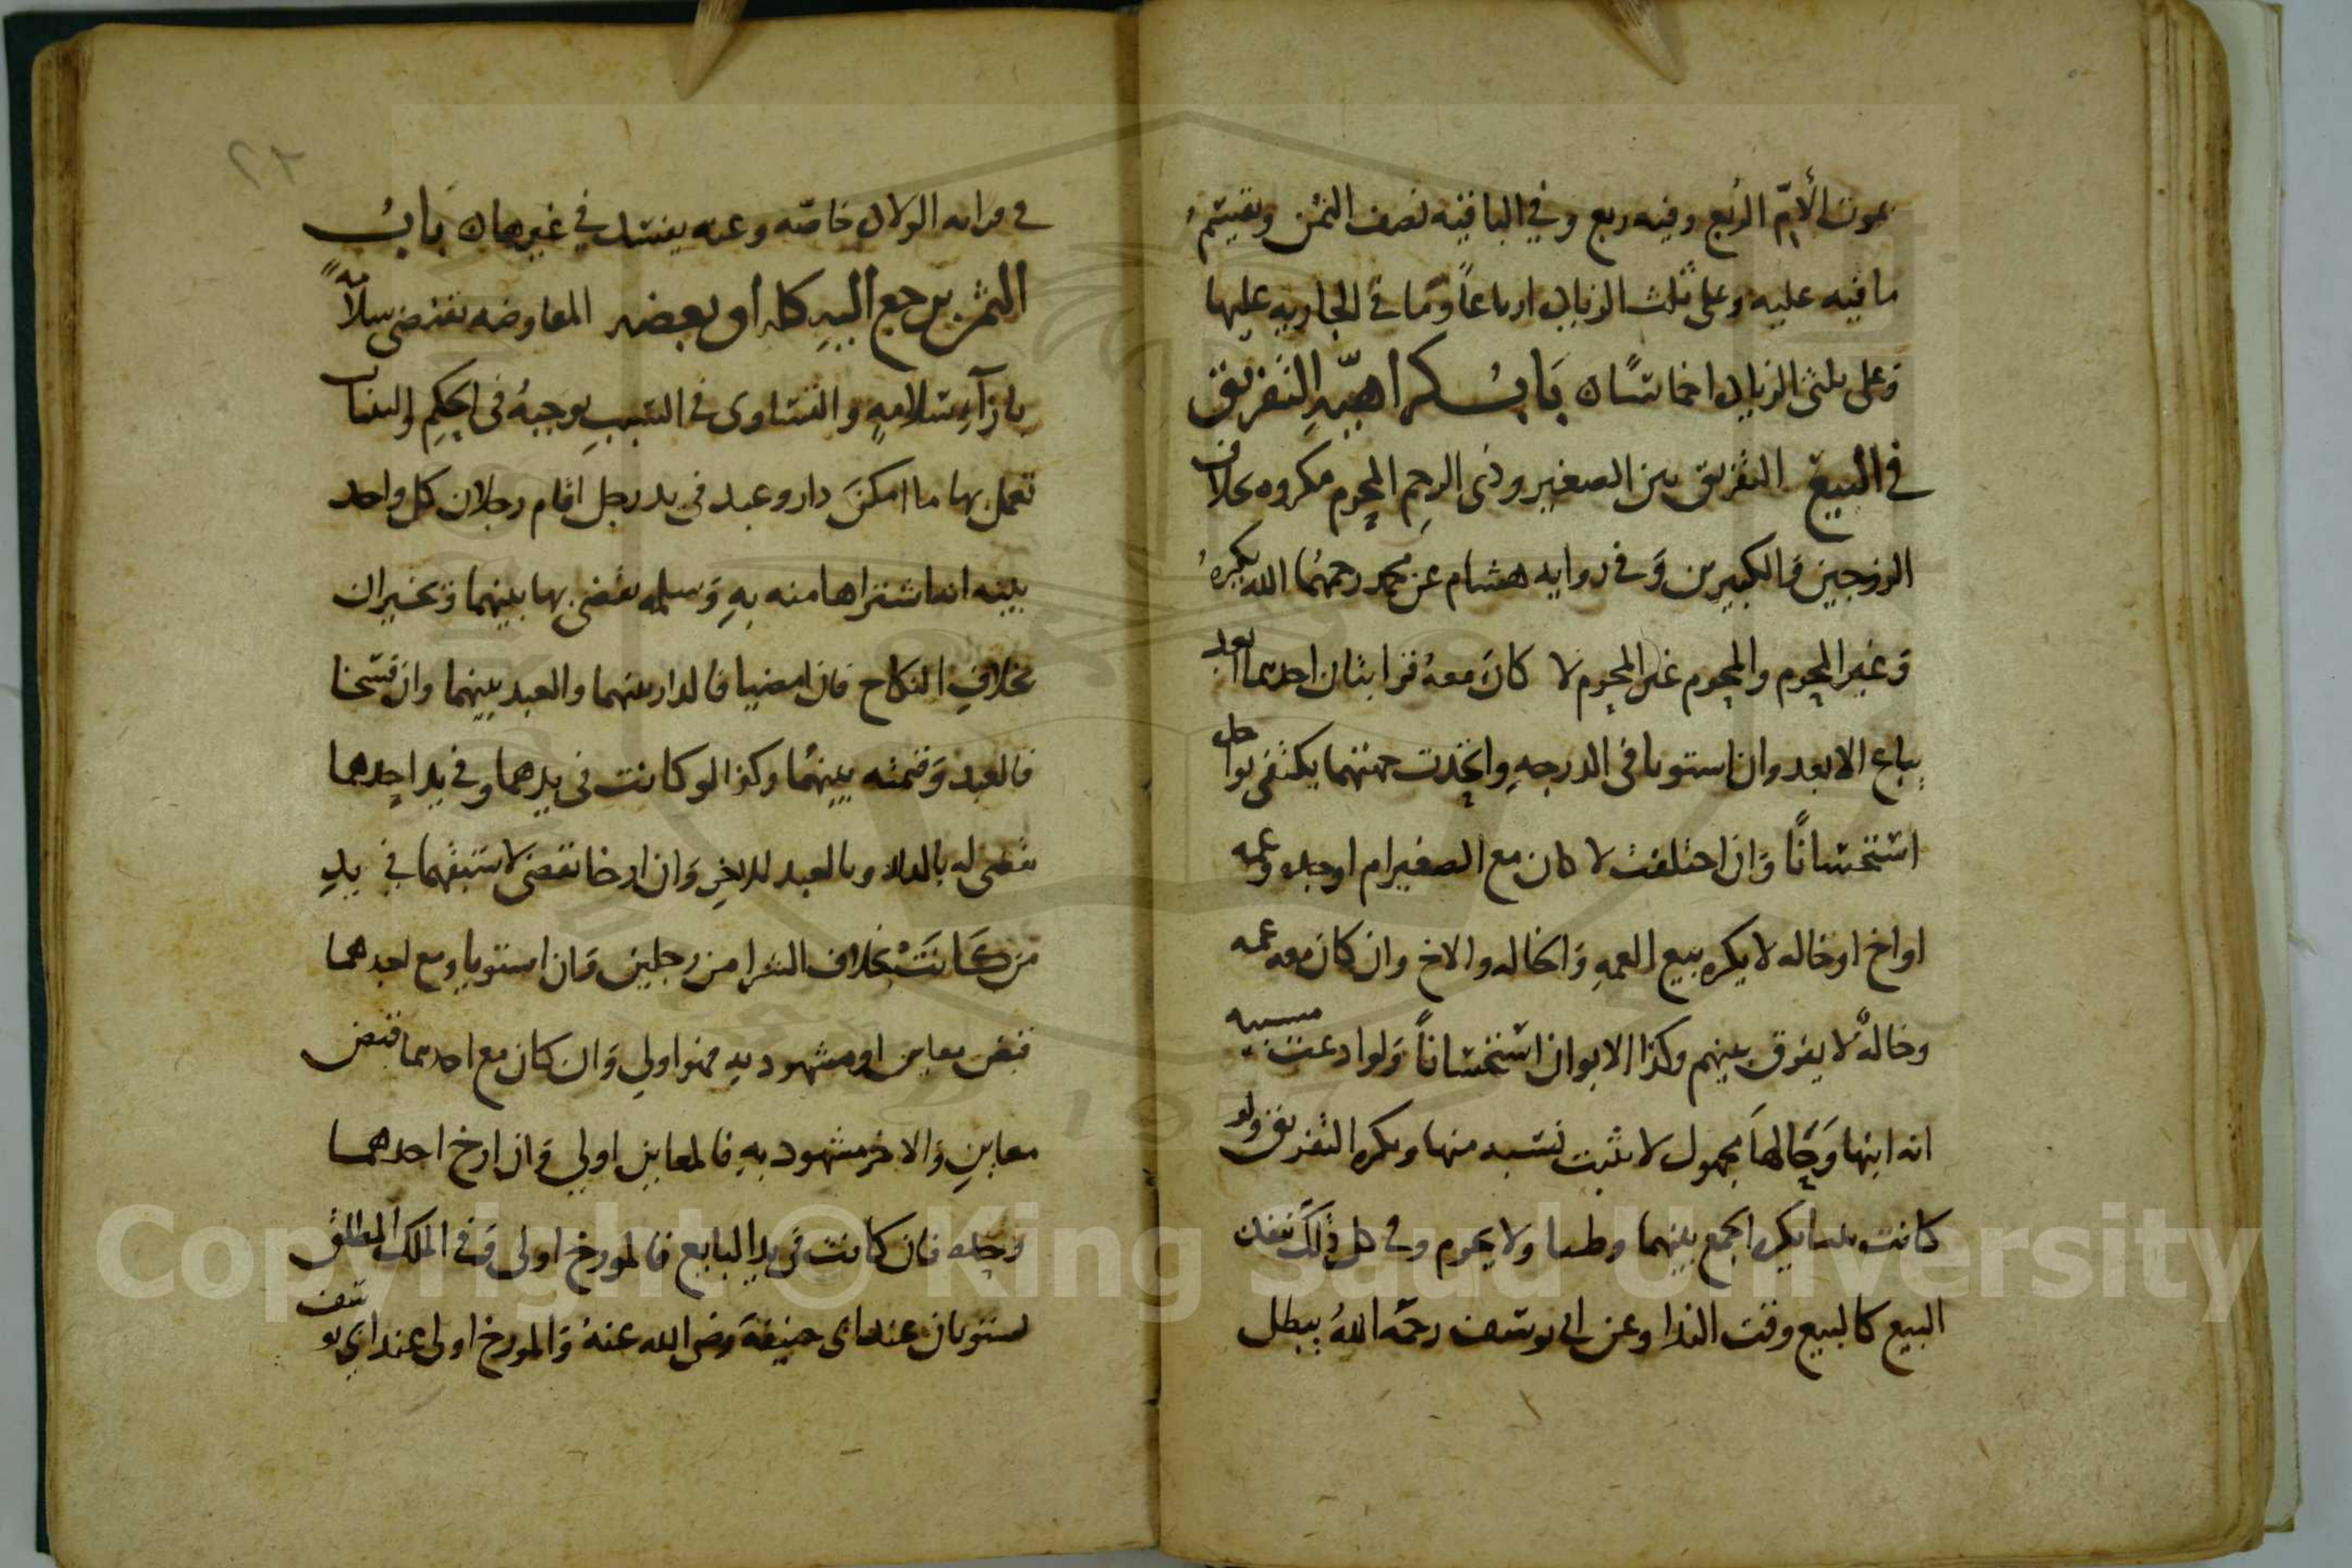 بموت الأم الربع وفيه ربع وفي الباقيه نصف الثمن ويقيتم
ما فيه عليه وعلى ثلث الزياد ارباعاً وما في الجاريه عليها
وعلى ثلثى الزياد اخماسًا باب كراهية التفريق
في البيع التفريق بين الصغير وذى الرحم المحرم مكروه بخلاف
الزوجين والكبيرين وفى روايه هشام عن محمد رحمهما الله يكره
وغير المحرم والمحرم غير الرحم لا كان معه قرابتان احدهما ابعد
يباع الابعد وان استويا فى الدرجه واتحدت جهتهما يكتفى بواحد
استحسانًا وان اختلفت لا كان مع الصغير ام او جده وعمه
او اخ او خاله لا يكره بيع العمه والخاله والاخ وان كان معه عمه
وخالة لا يفرق بينهم وكذا الابوان استحساناً ولو ادعت مسبيه
انه ابنها وحالها مجهول لا يثبت نسبه منها ويكره التفريق ولو
كانت بنتا يكره الجمع بينهما وطيا ولا يحرم وفى كل ذلك ينفذ
البيع كالبيع وقت الندا وعن ابى يوسف رحمه الله يبطل
فى قرابه الولاد خاصه وعنه يفسد في غيرها باب
الثمن يرجع اليه كله او بعضه المعاوضه تقتضى سلامة
بازآء سلامه والتساوى فى السبب يوجبه فى الحكم والبينات
تعمل بها ما امكن دار وعبد فى يد رجل اقام رجلان كل واحد
بينه انه اشتراها منه به وسلمه يقضى بها بينهما ويخيران
بخلاف النكاح فان امضيا فالدار بينهما والعبد بينهما وان فسخا
فالعبد وقيمته بينهما وكذا لو كانت فى يدهما وفى يد احدهما
يقضى له بالدار وبالعبد للاخر وان ارخا يقضى لاسبقهما في يد
من كانت بخلاف الشرا من رجلين وان استويا ومع احدهما
قبض معاين او مشهود به فهو اولى وان كان مع احدهما قبض
معاين والاخر مشهود به فالمعاين اولى وان ارخ احدهما
وحده فان كانت فى يد البايع فالمورخ اولى وفى الملك المطلق
يستويان عند ابى حنيفة رضى الله عنه والمورخ اولى عند ابي يوسف
Copyright © King Saud University